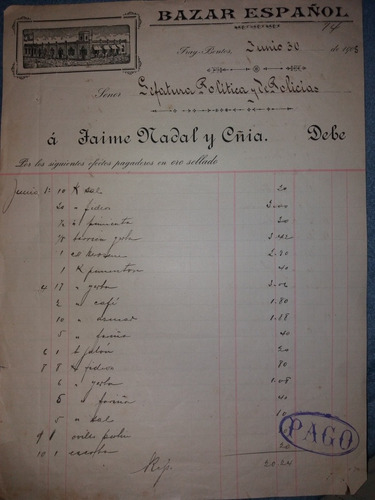 BAZAR ESPAÑOL
Fray-Bentos, Junio 30 de 190
Señor Jefatura Politica y de Policias
á Jaime Nadal y Cñia. Debe
Por los siguientes efectos pagaderos en oro sellado
Junio 1º 10 K sal 20
20 " fideos
½ " pimienta 20
1/8 tercera yerba 3.42
1 kerosen 2.20
1 K pimenton 40
4 17 " yerba
2 " café 1.80
10 " azucar 1.18
5 " fariña 40
6 1 jabón 20
8 8 K fideos 80
6 " yerba 1.08
5 " fariña 40
5 " sal 10
9 1
10 1 escoba 20
20.24
PAGO